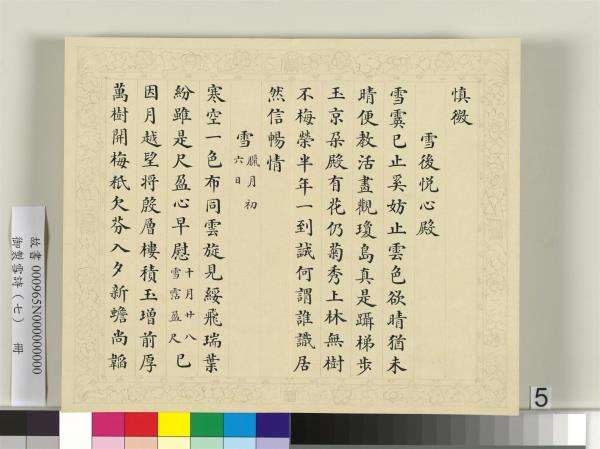 慎微
雪後悅心殿
雪霙已止奚妨止雲色欲晴猶未
晴便教活畫觀瓊島真是躡梯步
玉京朵殿有花仍菊秀上林無樹
不梅榮半年一到誠何謂誰識居
然信暢情
雪臘月初六日
寒空一色布同雲旋見綏飛瑞葉
紛雖是尺盈心早慰十月廿八雪霑盈尺已
因月越望將殷層樓積玉增前厚
萬樹開梅秖欠芬入夕新蟾尚韜
故書 000965N000000000
御製雪詩(七) 冊
5